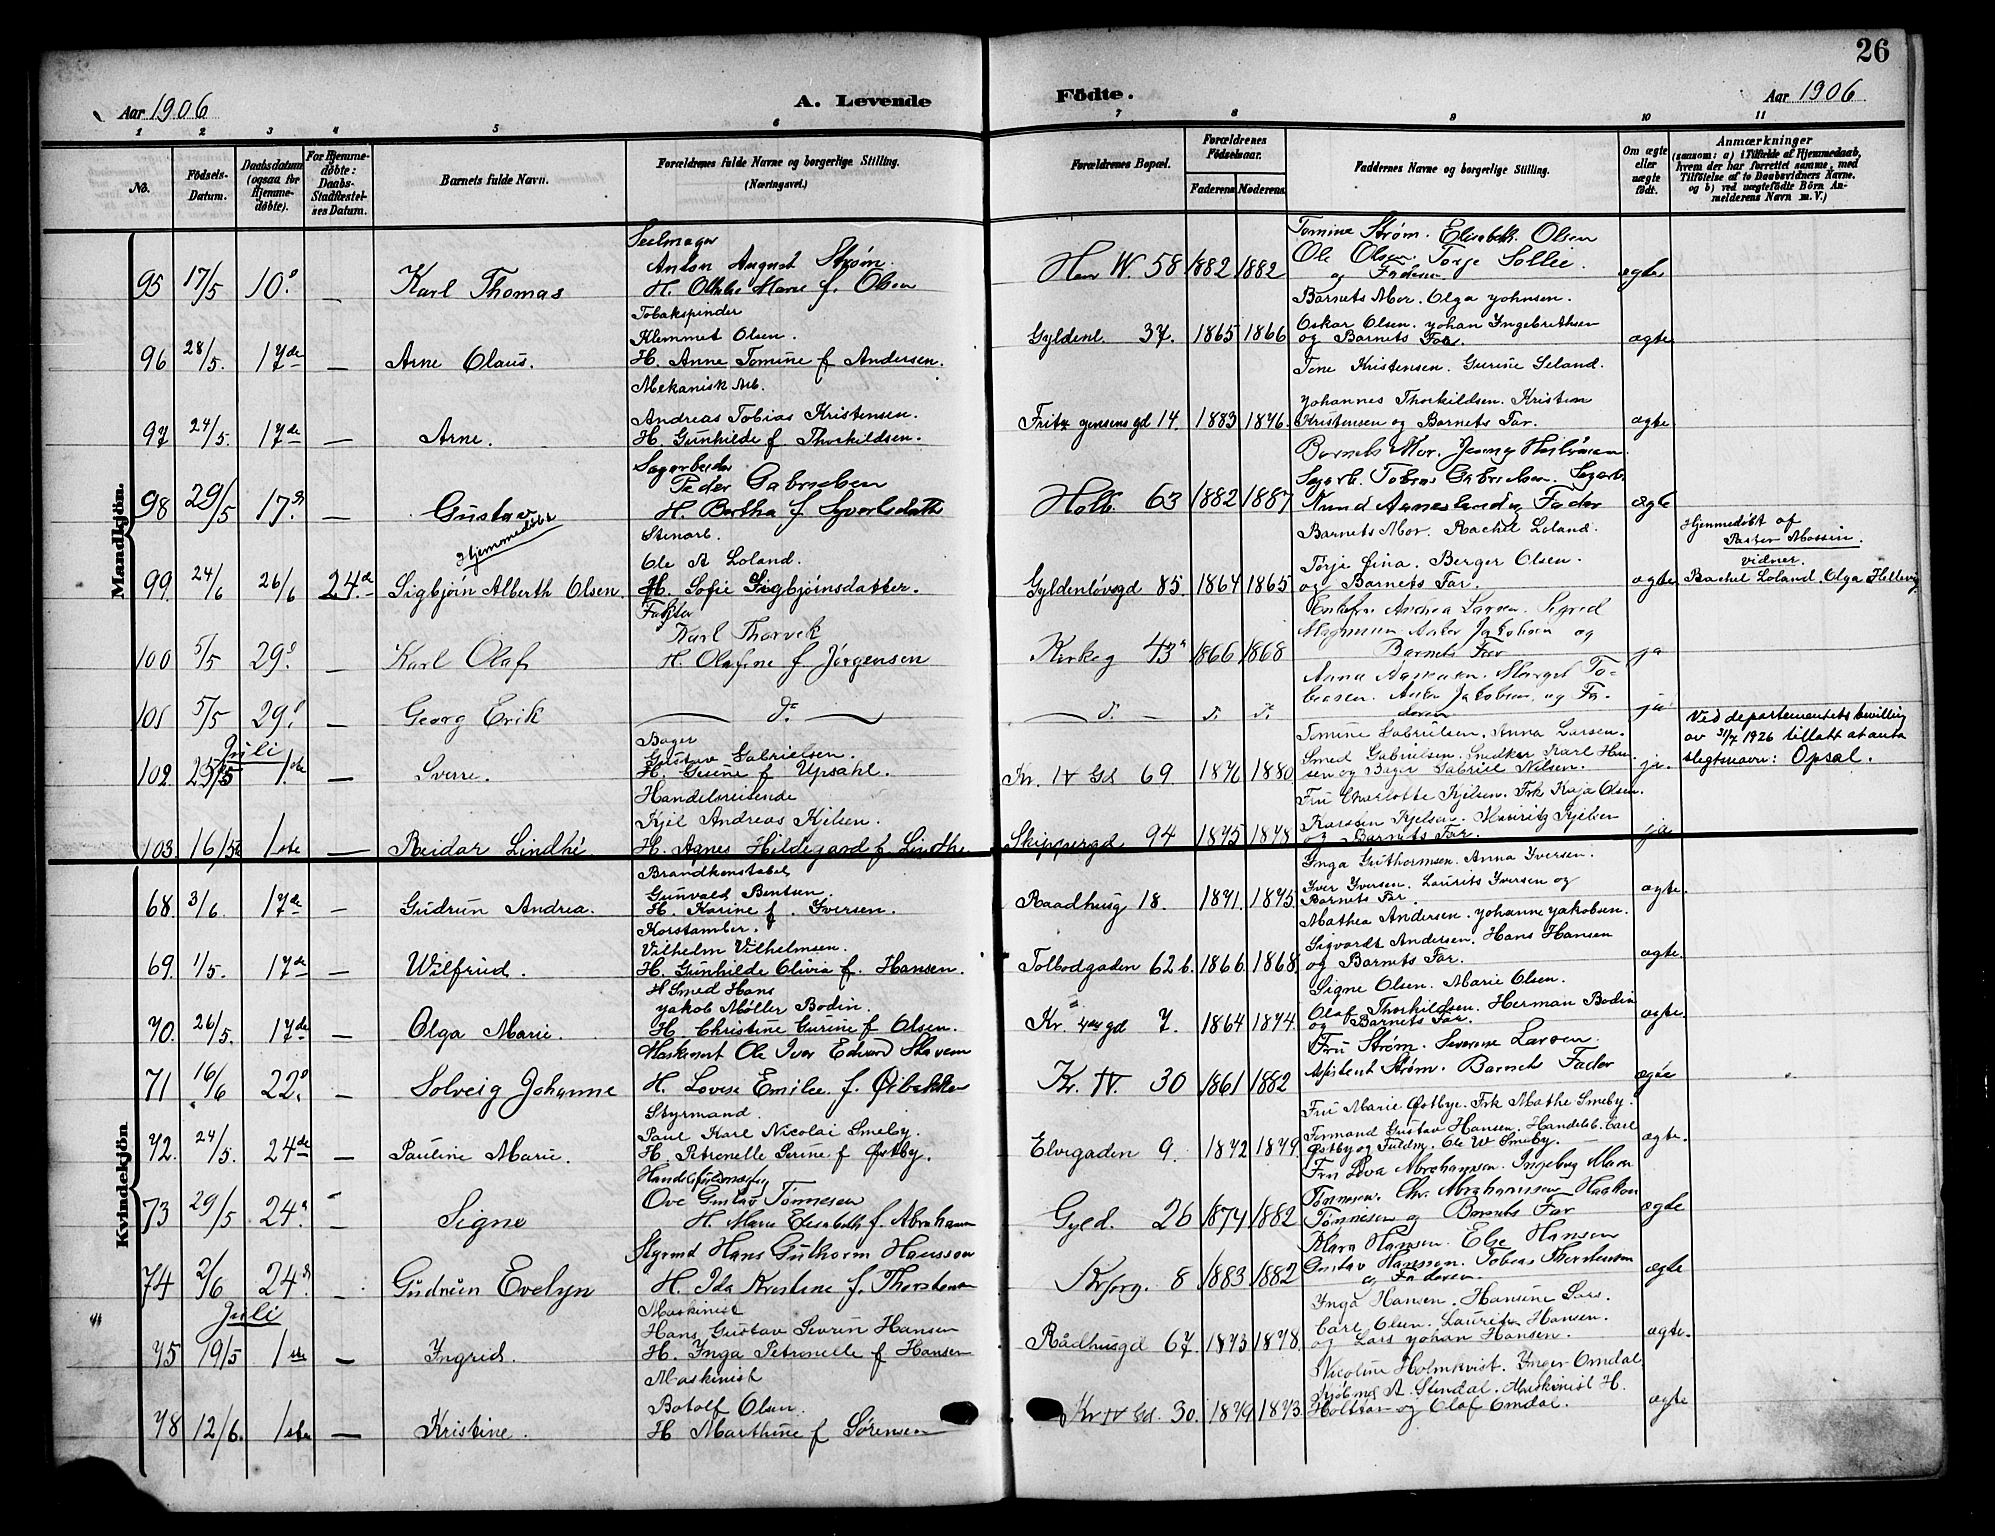 26
Aar 1906
A. Levende
Födte.
Aar 1906
1 2 3 4 5 6 7 8 9 10 11
No.
Födsels-Datum.
Daabsdatum (ogsaa for Hjemmedöbte).
For Hjemmedöbte: Daabs-Stadfæstelses Datum.
Barnets fulde Navn.
Forældrenes fulde Navne og borgerlige Stilling.
(Næringsvei.)
Forældrenes Bopæl.
Forældrenes Födselsaar.
Faderens Moderens
Faddernes Navne og borgerlige Stilling.
Om ægte eller uægte födt.
Anmærkninger
(saasom: a) i Tilfælde af Hjemmedaab, hvem der har forrettet samme, med Tilföielse af to Daabsvidners Navne, og b) ved uægtefödte Börn Anmelderens Navn m. V.)
Mandkjön.
Seilmager
Anton August Strøm.
95 17/5 10. — Karl Thomas H. Othilie Marie f. Olsen
Hen W. 58 1882 1882
Tomine Strøm. Elisabeth Olsen
Ole Olsen. Torje Sollie.
og Faderen
ægte
Tobakspinder
Klemmet Olsen.
96 28/5. 17de — Arne Olaus. H. Anne Tomine f Andersen.
Gyldenl. 37. 1865 1866
Barnets Mor. Olga Johnsen.
Oskar Olsen. Johan Ingebrethsen
og Barnets Far.
ægte
Mekanisk Arb.
Andreas Tobias Kristensen.
97 24/5. 17de — Arne. H. Gunhilde f Thorkildsen.
Fritz Jensens gd 14. 1883 1876
Tone Kristensen. Gurine Seland.
Johannes Thorkildsen. Kristian
Kristensen og Barnets Far.
ægte
Sagarbeider
Peder Gabrielsen
98 29/5 17. — Gustav H. Bertha f Syvertsdatter
Holb. 63 1882 1887
Barnets Mor. Jenny
Sagarb. Tobias Gabrielsen. Sagarb.
Knud Aanesland og Fader
ægte
Hjemmedøbt
Stenarb.
Ole A Loland.
99. 24/6 26/6 24.de Sigbjørn Alberth Olsen H. Sofie Sigbjørnsdatter.
Gyldenløvsgd 85. 1864 1865
Barnets Mor. Rachel Loland.
Torje Fina. Berger Olsen.
og Barnets Far.
ægte
Hjemmedøbt af
Pastor Mossin.
vidner.
Rachel Loland. Olga Hellevig
Faktor
Karl Thorvik
100 5/5 29. — Karl Olaf H. Olafine f Jørgensen
Kirkeg 43a 1866 1868
Enkefru Andrea Larsen. Sigrid
Magnussen. Anton Jakobsen og
Barnets Far
ja
101 5/5 29. — Georg Erik — do —
— d. — d. d.
Anna Aasmunsen. Margit To-
biasen. Anton Jakobsen og Fa-
deren
ja
Bager
Gustav Gabrielsen.
Juli
102. 25/5 1ste — Sverre. H. Gurine f Upsahl.
Kr. IV Gd 69. 1876 1880
Tomine Gabrielsen. Anna Larsen.
Smed Gabrielsen. Smedker Karl Han-
sen og Bager Gabriel Nilsen.
ja.
Ved departementets bevilling
av 31/7 1926 tillatt at anta
slegtsnavn: Opsal.
Handelsreisende
Kjel Andreas Kjelsen.
103. 16/5 1ste — Reidar Lindhé H. Agnes Hildegard f Lindhe
Skippergd 94 1875 1878
Fru Charlotte Kjelsen. Frk Kaja Olsen.
Karsten Kjelsen. Mauritz Kjelsen
og Barnets Far.
ja
Kvindekjön
Brandkonstabel
Gunvald Bentsen.
68. 3/6. 17de — Gudrun Andrea. H. Karine f. Iversen.
Raadhusg 18. 1871. 1875
Inga Guthormsen. Anna Iversen.
Iver Iversen. Laurits Iversen og
Barnets Far.
ægte.
Korstamber.
Vilhelm Vilhelmsen.
69. 1/5. 17de — Wilfrud. H. Gunhilde Olivia f. Hansen.
Tolbodgaden 62 b. 1866. 1868.
Mathea Andersen. Johanne Jakobsen.
Sigvardt Andersen. Hans Hansen
og Barnets Far.
ægte.
Smed Hans
Jakob Møller Bodin.
70. 26/5. 17de — Olga Marie. H. Christine Gurine f Olsen.
Kr. gd 7. 1864 1874
Signe Olsen. Marie Olsen.
Olaf Thorkildsen. Herman Bodin
og Barnets Far.
ægte.
Maskinist Ole Iver Edvard Stavem
71 16/6 22. — Solveig Johanne H. Lovise Emilie f. Øibakken
Kr. IV. 30 1861 1882
Fru Strøm. Severine Larsen.
Assistent Strøm. Barnets Fader
ægte
Styrmand.
Paul Karl Nicolai Smeby.
72. 24/5. 24de — Pauline Marie. H. Petronelle Serine f Østby.
Elvegaden 9. 1872 1879.
Fru Marie Østbye. Frk Mathe Smeby.
Formand Gustav Hansen. Handelsb. Carl
Østby og Fuldm. Ole W Smeby. —
ægte.
Handelsfuldmægtig
Ove Gustav Tønnesen
73 29/5 24. — Signe H. Marie Elisabeth f. Abraham
Gyld. 26 1874 1882
Fru Lova Abrahamsen. Ingeborg Marie
Tønnesen. Chr. Abrahamsen Haakon
Tønnesen og Barnets Far
ægte
Styrmd Hans Guthorm Hansson
74 2/6 24. Gudrun Evelyn H. Ida Kristine f. Thorstensen
Krforg. 8 1883 1882
Klara Hansen. Else Hansen
Gustav Hanssen. Tobias Thorstensen
og Faderen
ægte
Juli
Maskinist
Hans Gustav Severin Hansen
75 19/5 1ste — Ingrid. H. Inga Petronelle f Hansen
Rådhusgd 67. 1873 1878.
Inga Hansen. Hansine Lars.
Carl Olsen. Lauritz Hansen.
og Lars Johan Hansen.
ægte.
Maskinist
Botolf Olsen.
78 12/6. 1ste — Kristine. H Marthine f Sørensen
Kr IV Gd. 30. 1879 1873.
Nicoline Holmkvist. Inger Omdal
Kjøbmd A. Stendal. Maskinist H.
Holtvar og Olaf Omdal.
ægte